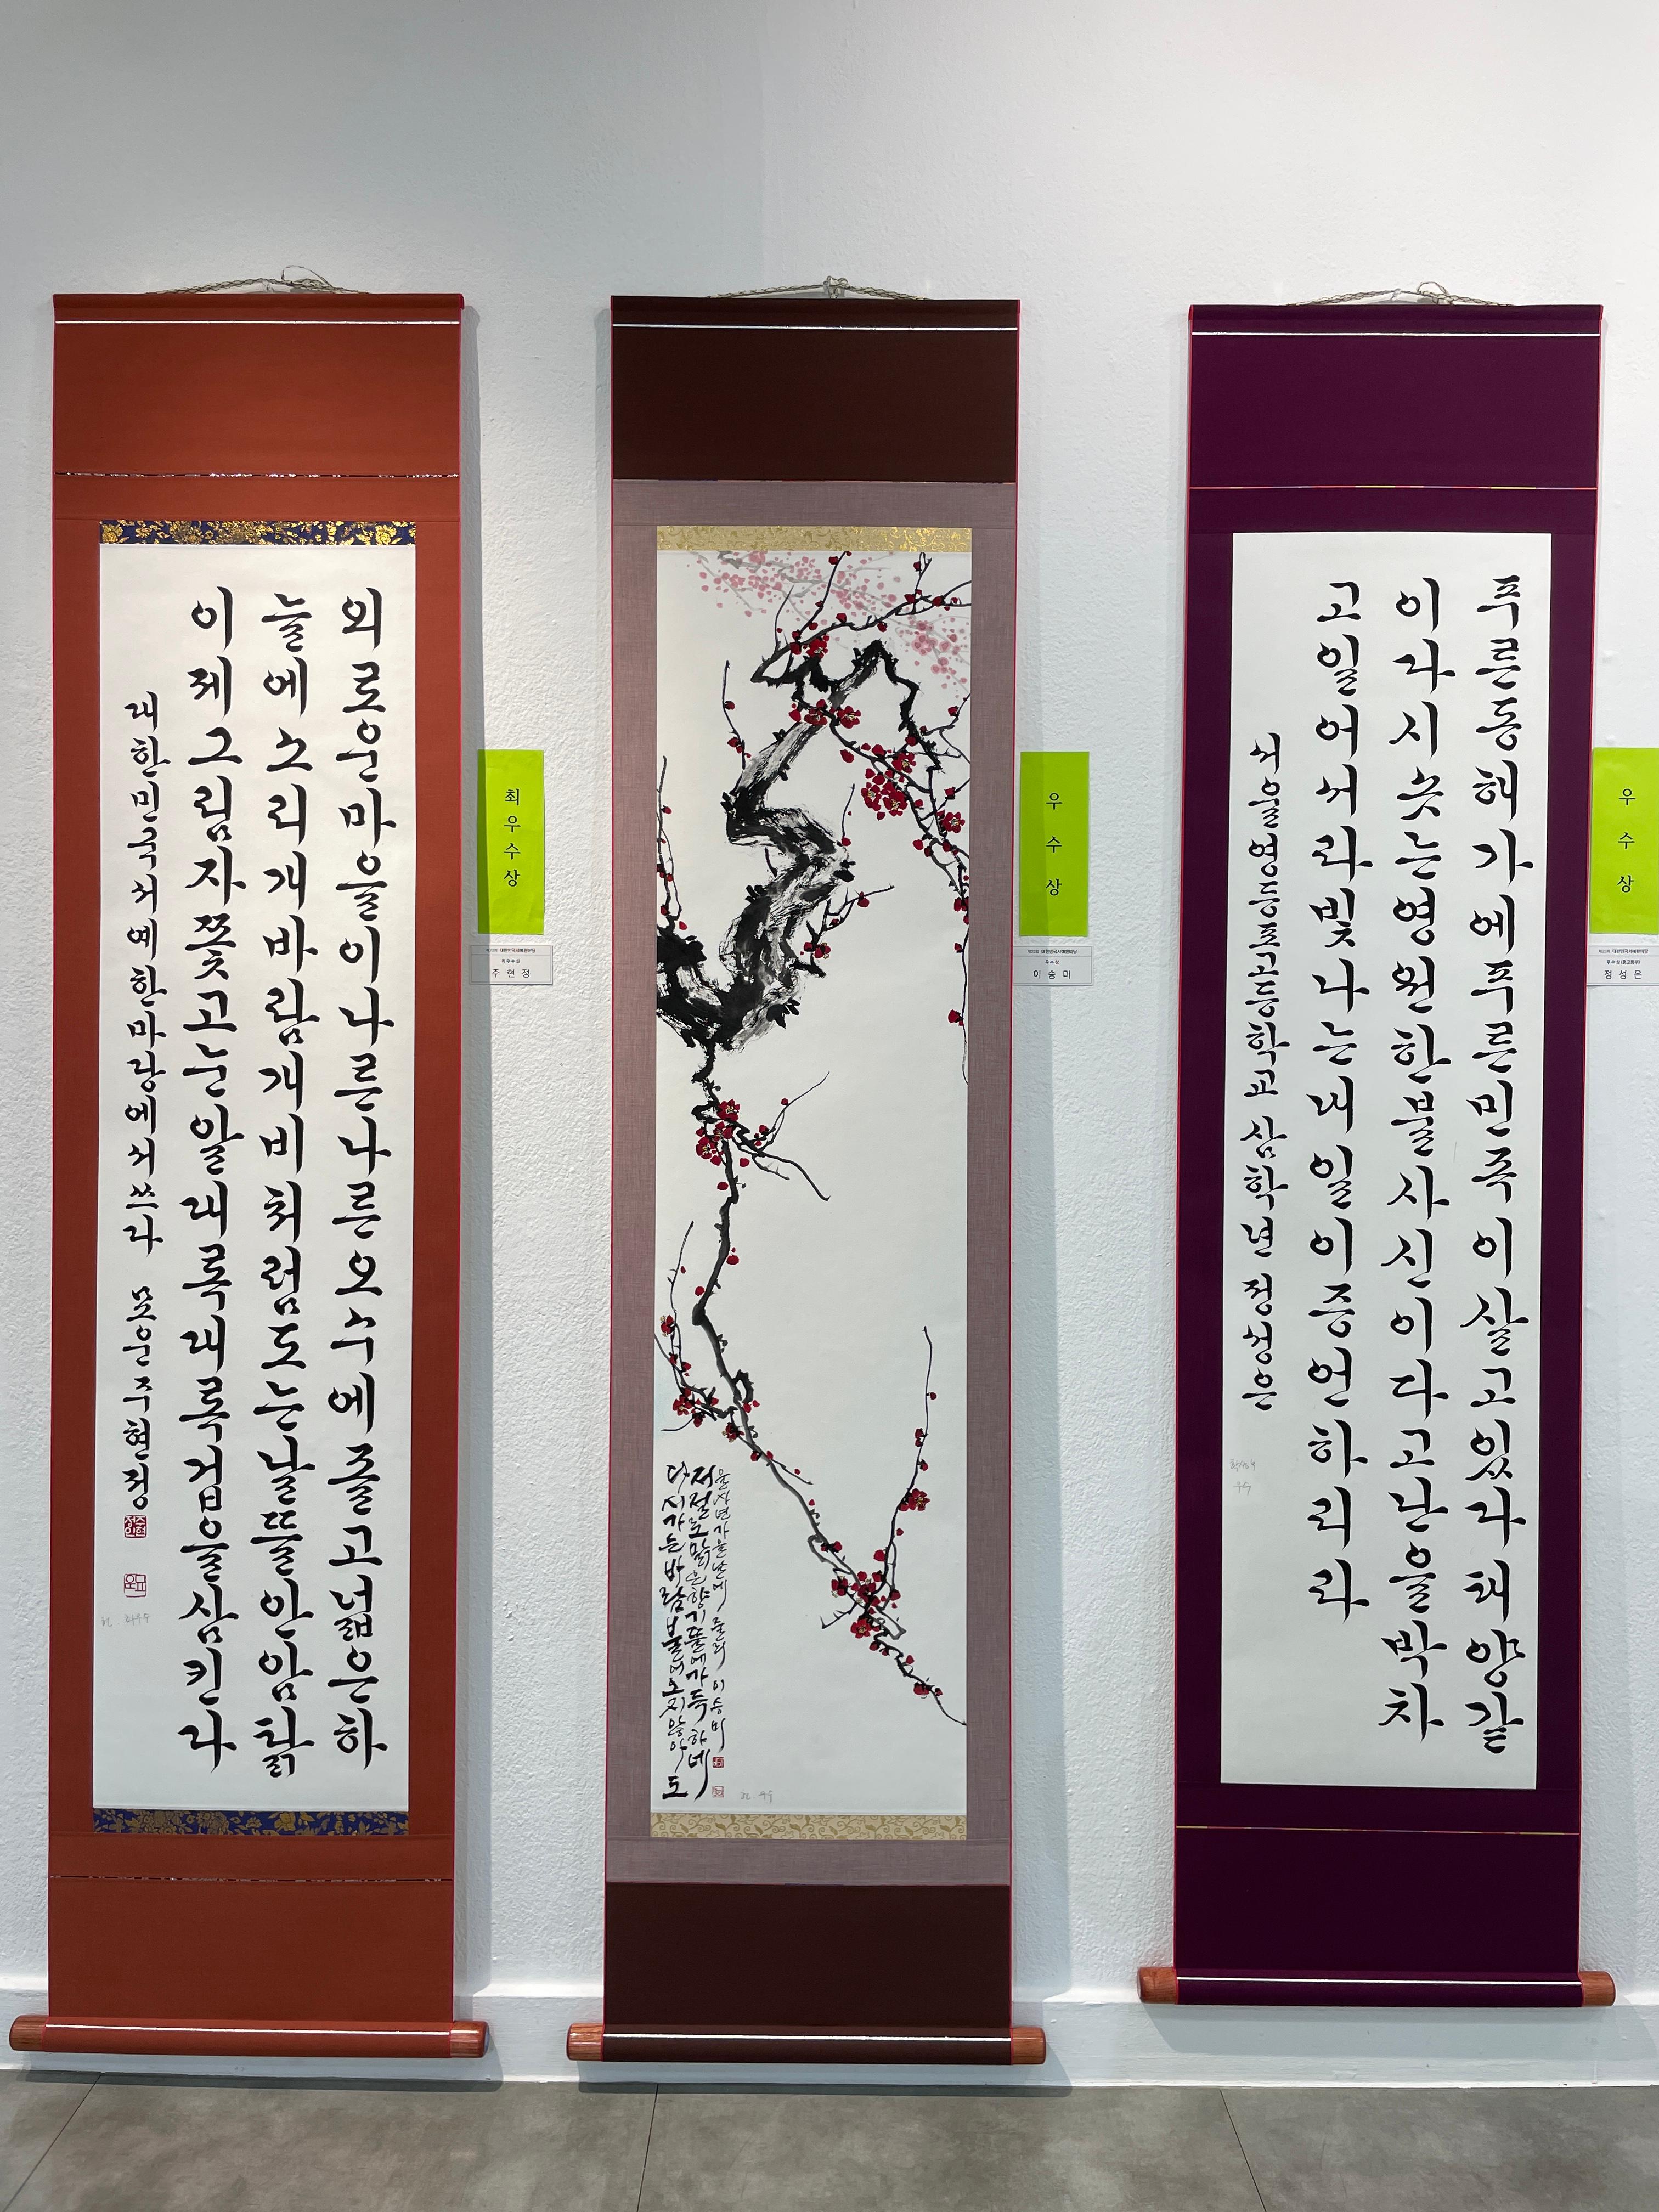 외로운마을이나른나른오수에졸고넓은하
늘에소리개바람개비처럼도는날뜰안암탉
이제그림자쫓고눈알대록대록겁을삼킨다
대한민국서예한마당에서쓰다 주현정
최우수상
대한민국서예한마당
최우수상
주현정
다시가는바람불어오지않아도
저절로맑은향기뜰에가득하네
을사년가을날에 이승미
우수상
대한민국서예한마당
우수상
이승미
푸른동해가에푸른민족이살고있다태양같
이다시솟는영원한불사신이다고난을박차
고일어서라빛나는내일이증언하리라
서울영등포고등학교 삼학년 정성은
우수상
대한민국서예한마당
우수상(중고등부)
정성은